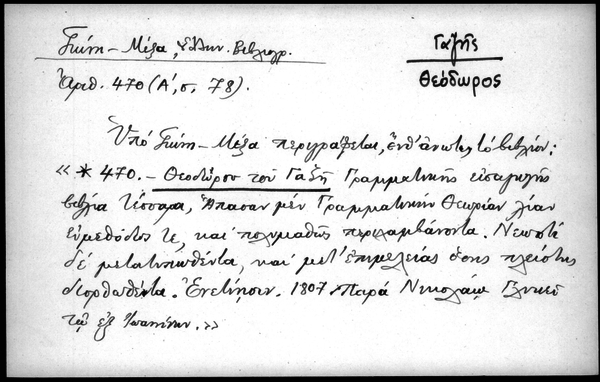 Γκίνη – Μέξα, Ἑλλην. Βιβλιογρ.
Γαζῆς
Θεόδωρος
Ἀριθ. 470 (Α΄, σ. 78).
Ὑπό Γκίνη – Μέξα περιγράφεται, ἔνθ' ἀνωτ., τό βιβλίον:
«* 470. – Θεοδώρου τοῦ Γαζῆ Γραμματικῆς εἰσαγωγῆς
βιβλία τέσσαρα, Ἅπασαν μέν Γραμματικήν Θεωρίαν λίαν
εὐμεθόδως τε, καί πολυμαθῶς περιλαμβάνοντα. Νεωστί
δέ μετατυπωθέντα, καί μετ' ἐπιμελείας ὅσης πλείστης
διορθωθέντα. Ἐνετίησιν. 1807. Παρά Νικολάῳ Γλυκεῖ
τῷ ἐξ Ἰωαννίνων.»